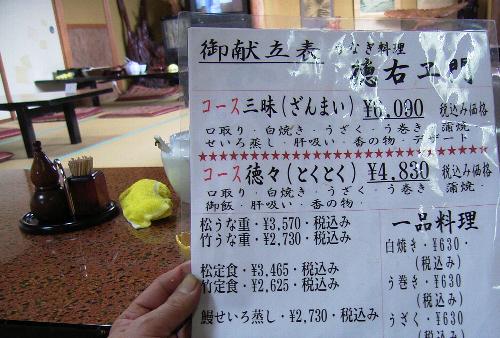 御献立表 うなぎ料理
徳右ヱ門
コース三昧(ざんまい) ¥6,090 税込み価格
口取り・白焼き・うざく・う巻き・蒲焼・
せいろ蒸し・肝吸い・香の物・デザート
★★★★★★★★★★★★★★★★★★★★★★★★★★★★
コース徳々(とくとく) ¥4,830 税込み価格
口取り・白焼き・うざく・う巻き・蒲焼・
御飯・肝吸い・香の物・
松うな重・¥3,570・税込み
竹うな重・¥2,730・税込み
松定食・¥3,465・税込み
竹定食・¥2,625・税込み
鰻せいろ蒸し・¥2,730・税込み
一品料理
白焼き・¥630・
(税込み)
う巻き・¥630・
(税込み)
うざく・¥630・
(税込み)